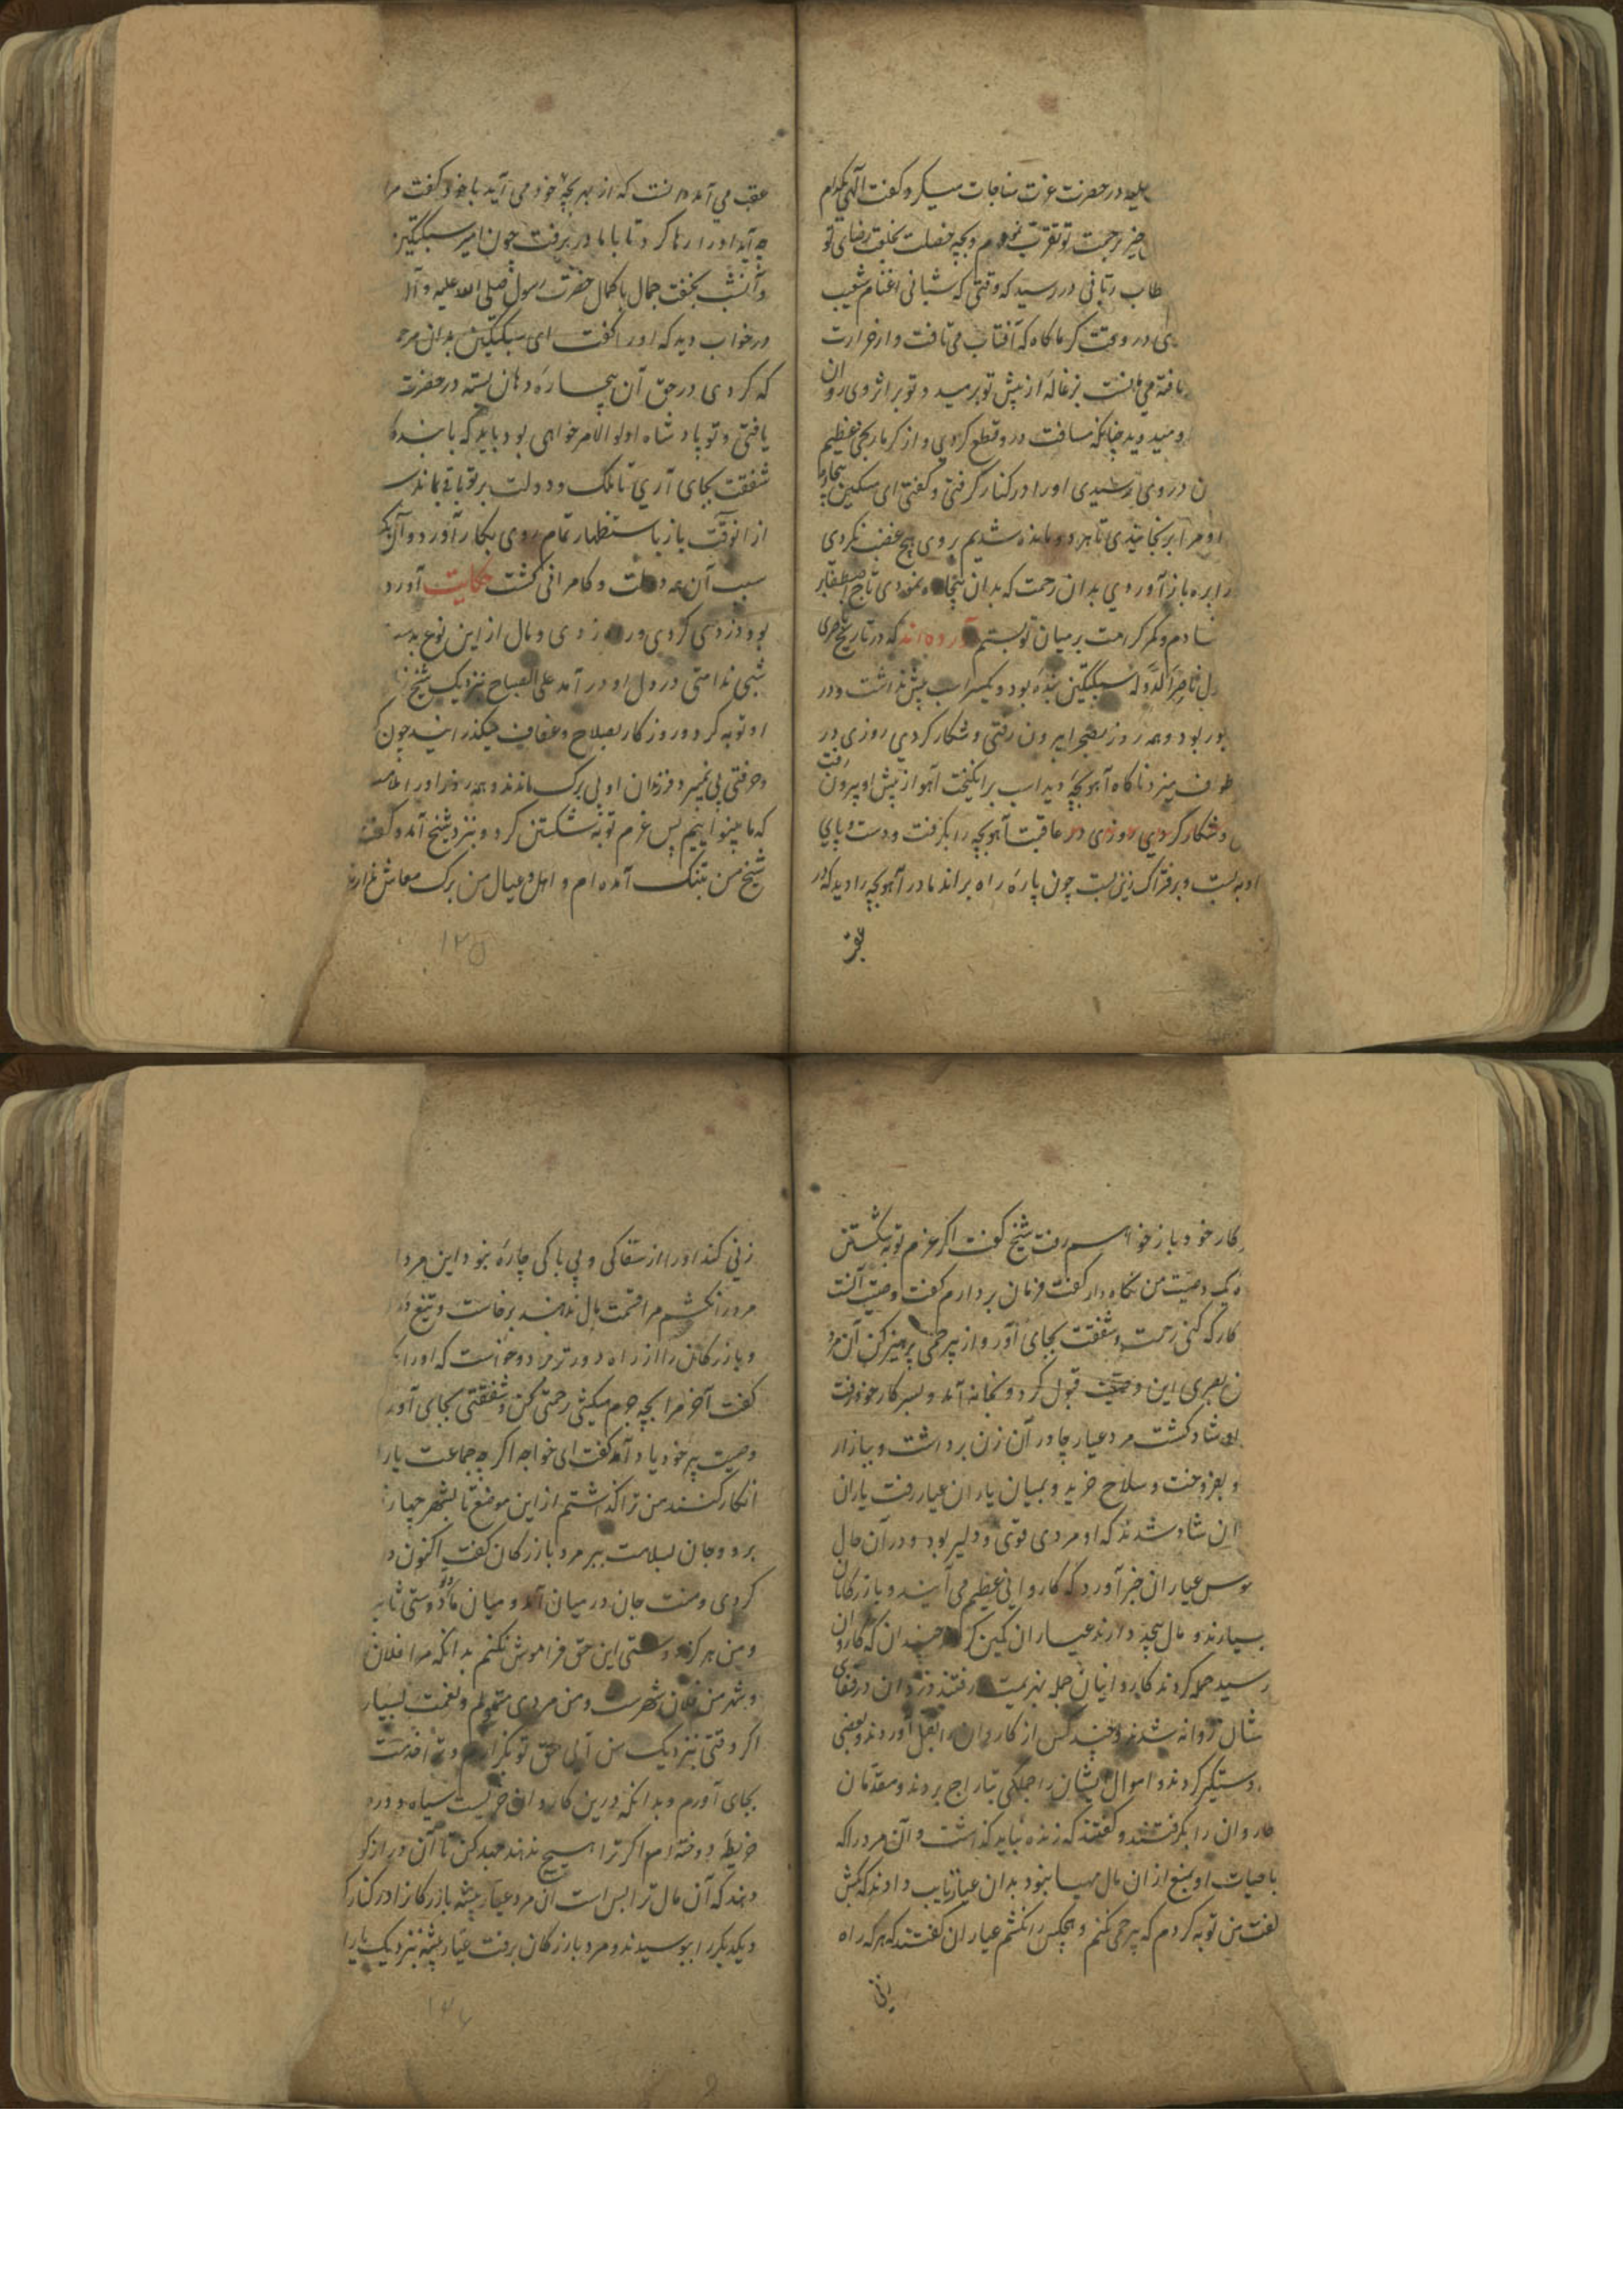 علیه در حضرت عزت مناجات میکرد و گفت الهی بکدام
چیز برحمت تو تقرب نمودم و بچه خصلت بخلق رضای تو
طاب ربانی در رسید که وقتی که شبانی اغنام شعیب
می در وقت گرماگاه که آفتاب می تافت و از حرارت
تافته می بزغاله از پیش تو برمید و تو بر اثر وی روان
او میدوید چنانکه مسافت در وقطع کردی و از گرما رنجی عظیم
ن در وی رسیدی او را در کنار گرفتی و گفتی ای مسکین بیچاره
او مرا برنجانیدی تا هر دو مانده شدیم بر وی هیچ عنف نکردی
را بره باز آوردی بدان رحمت که بدان بیچاره نمودی تاج اصطفا بر
نهادم و کمر کرامت بر میان تو بستم آورده اند که در تاریخ
ل ناصر الدوله سبکتکین بنده بود و یکسر اسب بیش نداشت و در
بور بود و همه روز بصحرا بیرون رفتی و شکار کردی روزی در
طرف میزد ناگاه آهو بچه دید اسب برانگیخت آهو از پیش او بیرون رفت
و شکار کردی روزی در عاقبت آهو بچه را بگرفت و دست و پای
او به بست و بر فتراک زین بست چون پاره راه براند مادر آهو بچه را دید که در
عقب
عقب می آمد دانست که از بهر بچه خود می آید با خود گفت مرا
چه آید او را رها کرد تا با مادر برفت چون امیر سبکتکین
آنشب بخفت جمال با کمال حضرت رسول صلی الله علیه و آله
در خواب دید که او را گفت ای سبکتکین بدان مر
که کردی در حق آن بیچاره دهان بسته در حضرت
یافتی و تو پادشاه اولو الامر خواهی بود باید که با بنده
شفقت بجای آری تا ملک و دولت بر تو باقی بماند
از انوقت باز باستظهار تمام روی بکار آورد و آن یک
سبب آن همه دولت و کامرانی گشت حکایت آورد
بود دزدی کردی و راه زدی و مال از این نوع بد
شبی ندامتی در دل او در آمد علی الصباح نزدیک شیخ
او توبه کرد و روزگار بصلاح و عفاف میگذرانید چون
و حرفتی فرزندان او بی برگ ماندند و همه روز او را ملامت
که ما بینوائیم پس عزم توبه شکستن کرد و نزد شیخ آمد و گفت
شیخ من بتنگ آمده ام و اهل و عیال من برگ معاش ندارند
۱۲۵
کار خود باز خواهم رفت شیخ گفت اگر عزم توبه شکستن
یک وصیت من نگاه دار گفت فرمان بردارم گفت وصیت آنست
کار که کنی رحمت و شفقت بجای آور و از بیرحمی پرهیز کن آن مرد
ن بصری این وصیت قبول کرد و بخانه آمد و بسر کار خود رفت
شاد گشت مرد عیار چادر آن زن برداشت و ببازار
و بفروخت و سلاح خرید و بمیان یاران عیار رفت یاران
ان شاد شدند که او مردی قوی و دلیر بود و در آن حال
سوس عیاران خبر آورد که کاروانی عظیم می آیند و بازرگانان
بسیارند و مال بیحد دارند عیاران کمین کردند چندان که کاروان
رسید حمله کردند کاروانیان جمله بهزیمت رفتند دزدان در قفای
شان روانه شدند و چند کس از کاروان را بقتل آوردند و بعضی
دستگیر کردند و اموال ایشان را جملگی بتاراج بردند و مقدمان
کاروان را بگرفتند و گفتند که زنده نباید گذاشت و آن مرد را که
با حیات او منع از ان مال مهیا نبود بدان عیار تایب دادند که بکش
گفت من توبه کردم که بیرحمی نکنم و هیچکس را نکشم عیاران گفتند که هر که راه
زنی
زنی کند او را از سفاکی و بی باکی چاره نبود این مرد ا
مرد را نکشم مرا قسمت مال ندهند برخاست و تیغ
و بازرگان را از راه دورتر برد و خواست که او را
گفت آخر مرا بچه جرم میکشی رحمتی کن و شفقتی بجای آور
وصیت پیر خود یاد آمد گفت ای خواجه اگر چه جماعت یارا
انکار کنند من ترا گذاشتم از این موضع تا بشهر چهار
برو و جان بسلامت ببر مرد بازرگان گفت اکنون
کردی و منت جان در میان آمد و میان ما و تو دوستی ثابت
و من هرگز دوستی این حق فراموش نکنم بدانکه مرا فلان
و شهر من فلان شهرست و من مردی متمولم و نعمت بسیار
اگر وقتی نزدیک من آئی حق تو بگزارم و شرط خدمت
بجای آورم و بدانکه درین کاروان خریست سیاه و در
خریطه دوخته ام اگر ترا هیچ ندهند جهد کن تا آن دراز گو
دهند که آن مال ترا بس است آن مرد عیار پیشه بازرگانرا در کنار
و یکدیگر را ببوسیدند و مرد بازرگان برفت عیار پیشه نزدیک یارا
۱۲۶